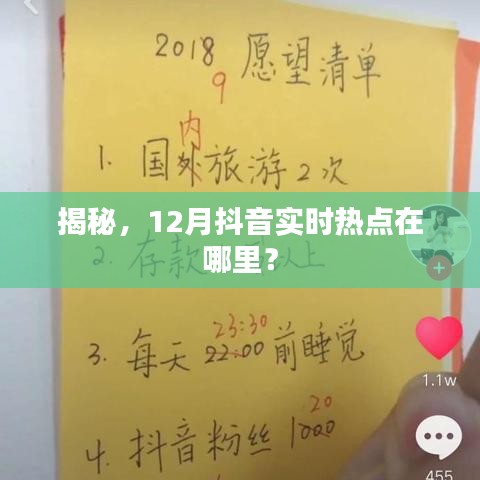 2018 愿望清单
9
内
1. 国外旅游2次
揭秘，12月抖音实时热点在
哪里？
2. 存款 以上
23:30
3. 每天 22:00 前睡觉
20
4. 抖音粉丝 1000
1.1w
455